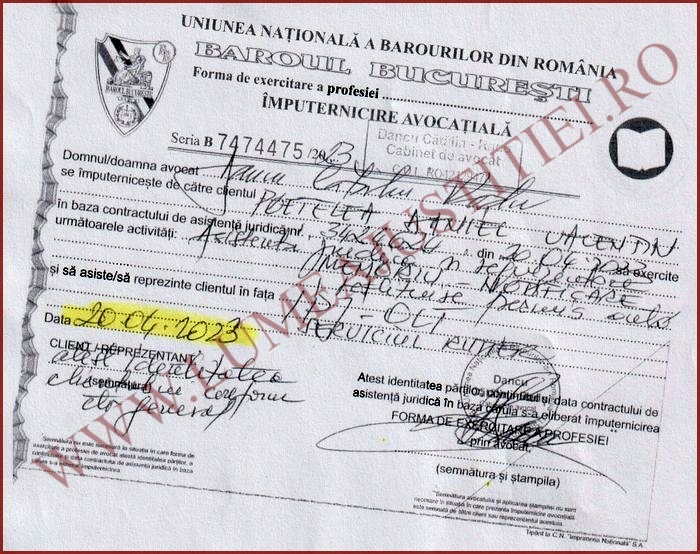 UNIUNEA NAȚIONALĂ A BAROURILOR DIN ROMÂNIA
BAROUL BUCUREȘTI
Forma de exercitare a profesiei
BAROUL BUCUREȘTI
ÎMPUTERNICIRE AVOCAȚIALĂ
Seria B 7474475/2023
Dancu Cătălin - Radu
Cabinet de avocat
Domnul/doamna avocat Dancu Cătălin Radu
se împuternicește de către clientul POETELEA DANIEL VALENTIN
în baza contractului de asistență juridică nr. din 20.04.2023 să exercite
următoarele activități: Asistență juridică
MEMORIU - NOTIFICARE
restituire permis auto
și să asiste/să reprezinte clientul în fața IPJ - OLT
Data 20.04.2023 SERVICIUL RUTIER
CLIENT / REPREZENTANT
atest identitatea
(semnătura)
clientului conform
cto general
Dancu
Atest identitatea părților, conținutul și data contractului de
asistență juridică în baza căruia s-a eliberat împuternicirea
FORMA DE EXERCITARE A PROFESIEI
prin avocat,
(semnătura și ștampila)
Semnătura nu este necesară în situația în care forma de
exercitare a profesiei de avocat atestă identitatea părților, a
conținutului și data contractului de asistență juridică în baza
căruia s-a eliberat împuternicirea
"Semnătura avocatului și aplicarea ștampilei nu sunt
necesare în situația în care prezenta împuternicire avocațială
este semnată de către client sau reprezentantul acestuia
Tipărit la C.N. "Imprimeria Națională" S.A.
WWW.LUMEAJUSTITIEI.RO